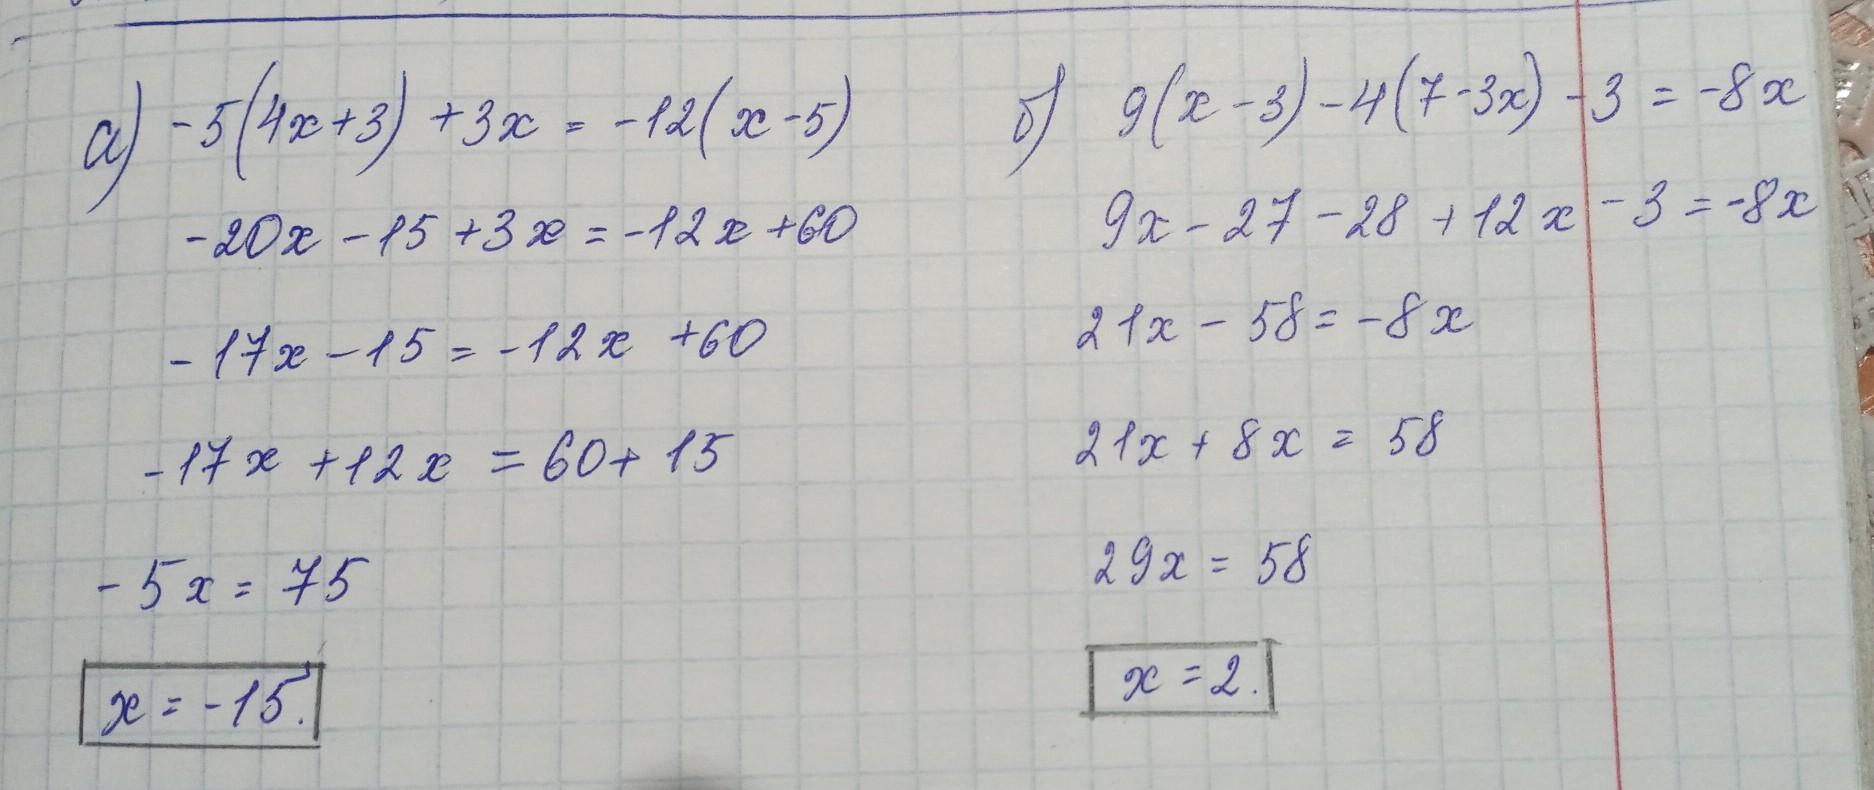 а) -5(4x+3) +3x = -12(x-5)
-20x -15 +3x = -12x +60
-17x -15 = -12x +60
-17x +12x = 60+15
-5x = 75
x = -15.
б) 9(x-3) -4(7-3x) -3 = -8x
9x -27 -28 +12x -3 = -8x
21x - 58 = -8x
21x + 8x = 58
29x = 58
x = 2.